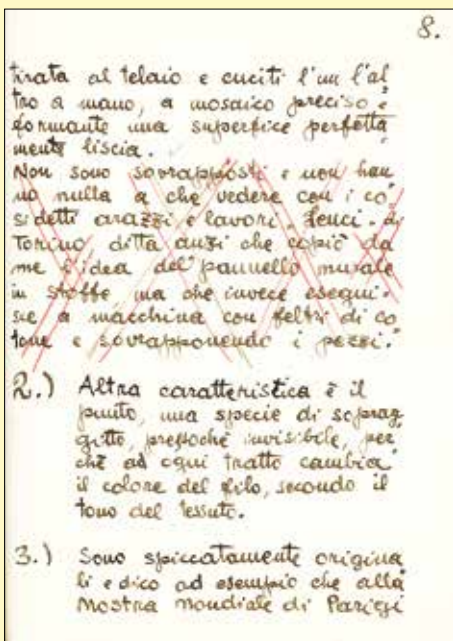 8.
tirata al telaio e cuciti l'un l'al
tro a mano, a mosaico preciso e
formante una superfice perfetta
mente liscia.
Non sono sovrapposti e non han
no nulla a che vedere con i co
sidetti arazzi e lavori Lenci. di
Torino ditta anzi che copiò da
me l'idea del pannello murale
in stoffe ma che invece esegui-
sce a macchina con feltri di co
tone e sovrapponendo i pezzi.
2.) Altra caratteristica è il
punto, una specie di soprag
gitto, pressoché invisibile, per
chè ad ogni tratto cambia
il colore del filo, secondo il
tono del tessuto.
3.) Sono spiccatamente origina
li e dico ad esempio che alla
Mostra mondiale di Parigi